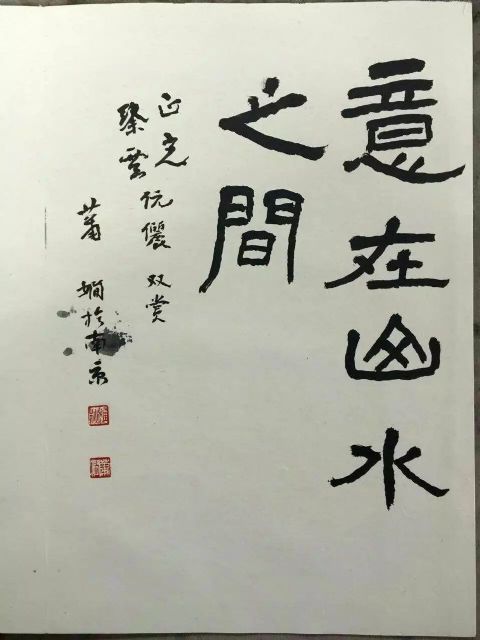 意在山水
之間
正亮
黎雲伉儷双赏
蕭嫻於南京